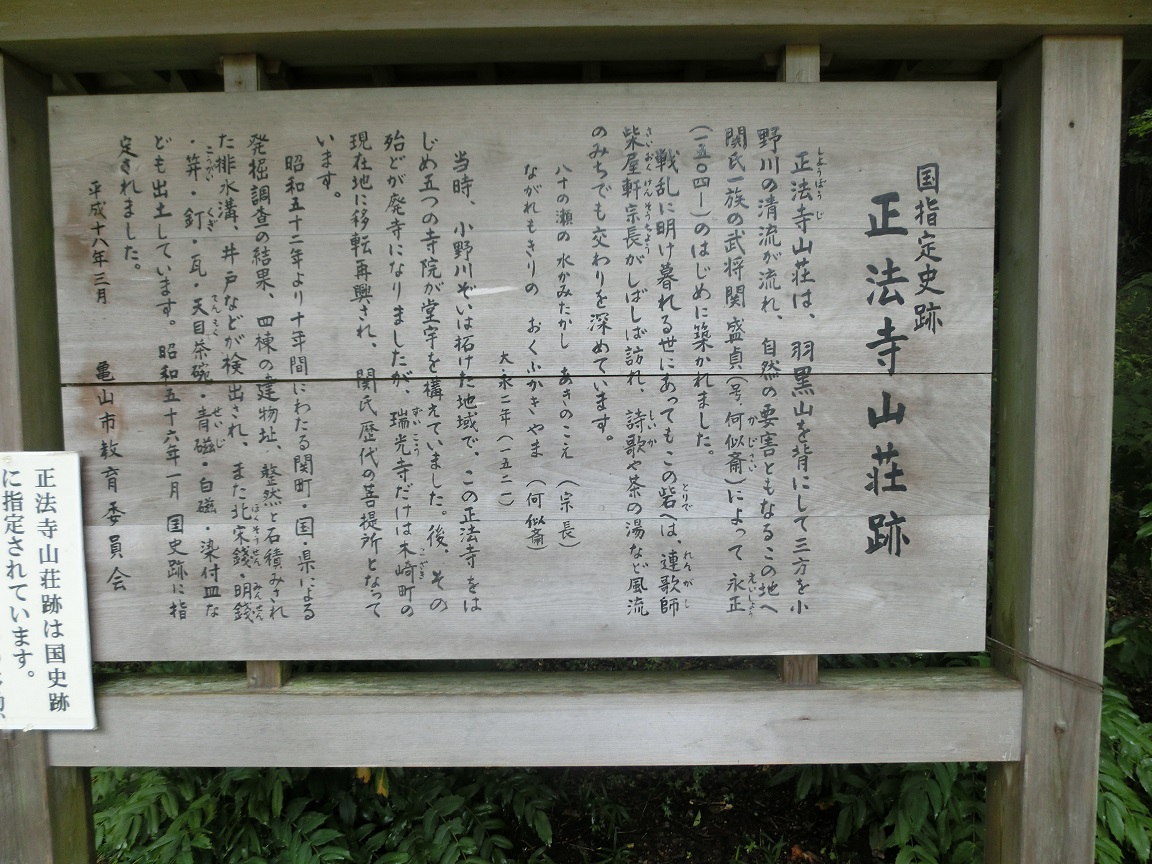 国指定史跡
正法寺山荘跡
しょうぼうじ
正法寺山荘は、羽黒山を背にして三方を小
野川の清流が流れ、自然の要害ともなるこの地へ
かじさい えいしょう
関氏一族の武将関 盛貞(号、何似斎)によって 永正
(一五〇四―)のはじめに築かれました。
とりで れんがし
戦乱に明け暮れる世にあっても この砦へは、連歌師
さいおくけんそうちょう しいか
柴屋軒宗長がしばしば訪れ、詩歌や茶の湯など風流
のみちでも交わりを深めています。
八十の瀬の 水かみたかし あきのこえ (宗長)
ながれもきりの おくふかきやま (何似斎)
大永二年(一五二二)
当時、小野川ぞいは拓けた地域で、この正法寺をは
じめ五つの寺院が堂宇を構えていました。後、その
ずいこう こざき
殆どが廃寺になりましたが、瑞光寺だけは木崎町の
現在地に移転再興され、関氏歴代の菩提所となって
います。
昭和五十二年より十年間にわたる関町・国・県による
発掘調査の結果、四棟の建物址、整然と石積みされ
ほくそうせん みんせん
た排水溝、井戸などが検出され、また北宋銭・明銭
こうがい くぎ てんもく せいじ
・笄・釘・瓦・天目茶碗・青磁・白磁・染付皿な
ども出土しています。昭和五十六年一月 国史跡に指
定されました。
平成十八年三月 亀山市教育委員会
正法寺山荘跡は国史跡
に指定されています。